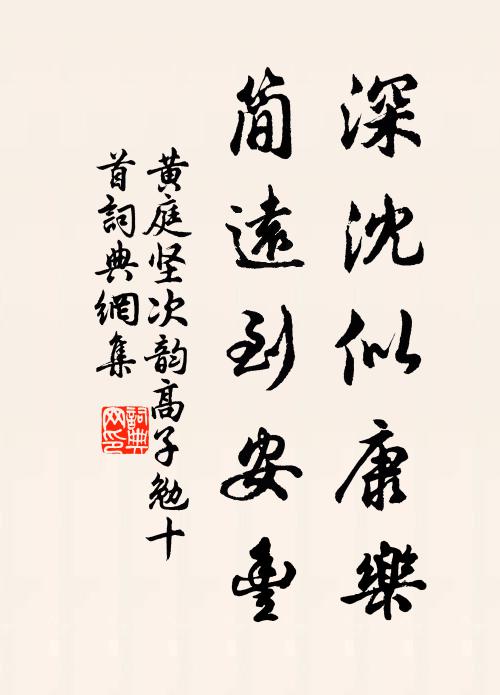 深沈似康樂
簡遠到安豐
黄庭坚次韵高子勉十
首詞典網集
詞典
网印